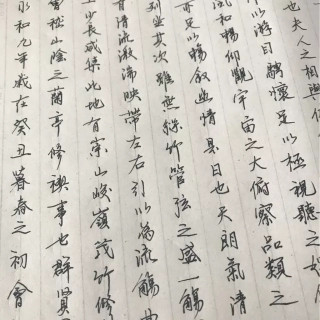 永和九年歲在癸丑暮春之初會
會稽山陰之蘭亭修禊事也群賢
少長咸集此地有崇山峻嶺茂竹修
有清流激湍映帶左右引以為流觴曲
列坐其次雖無絲竹管弦之盛一觴
亦足以暢敘幽情是日也天朗氣清
風和暢仰觀宇宙之大俯察品類之
以游目騁懷足以極視聽之娛
也夫人之相與